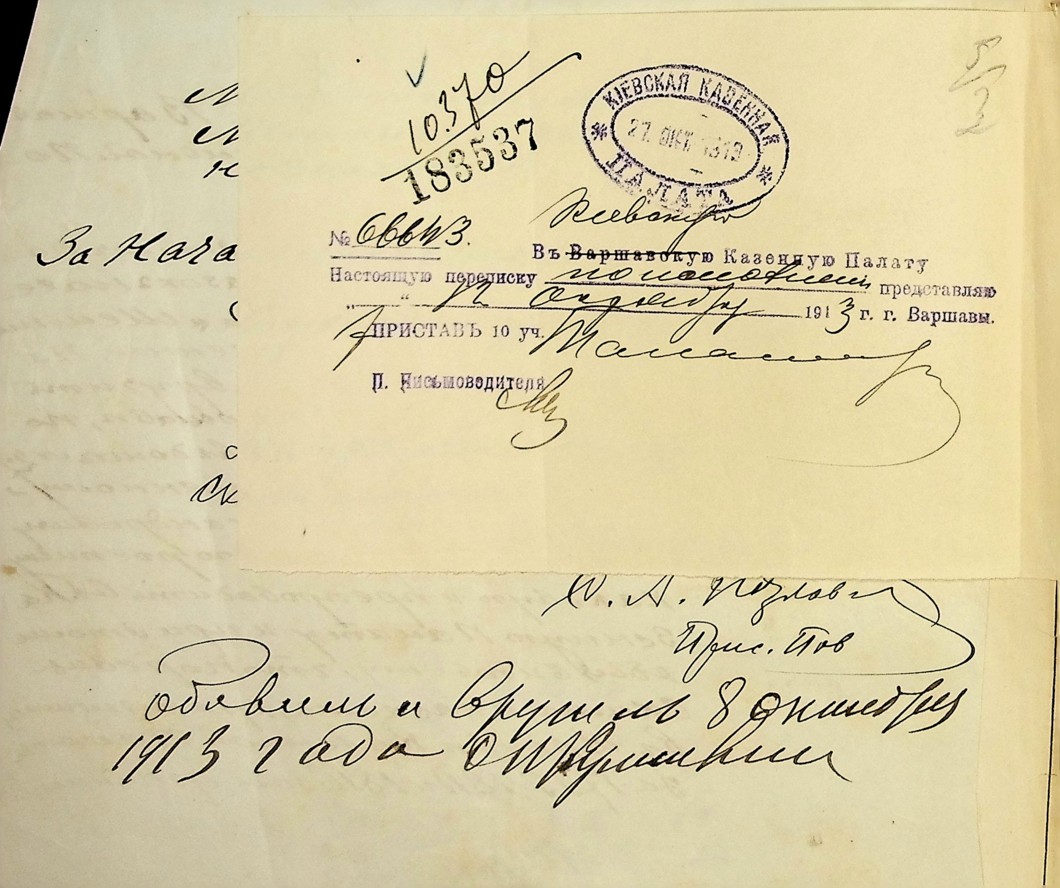 5/2
10370
183537
КІЕВСКАЯ КАЗЕННАЯ
27. ОКТ. 1913
ПАЛАТА
Кіевскую
№ 66643.
Въ Варшавскую Казенную Палату
Настоящую переписку по исполненіи представляю
„ 12 „ Октября 1913 г. г. Варшавы.
ПРИСТАВЪ 10 уч.
П. Письмоводителя
За Нача
Ск
А. Козлов
Прис. Пов
объявилъ и вручилъ 8 октября
1913 года